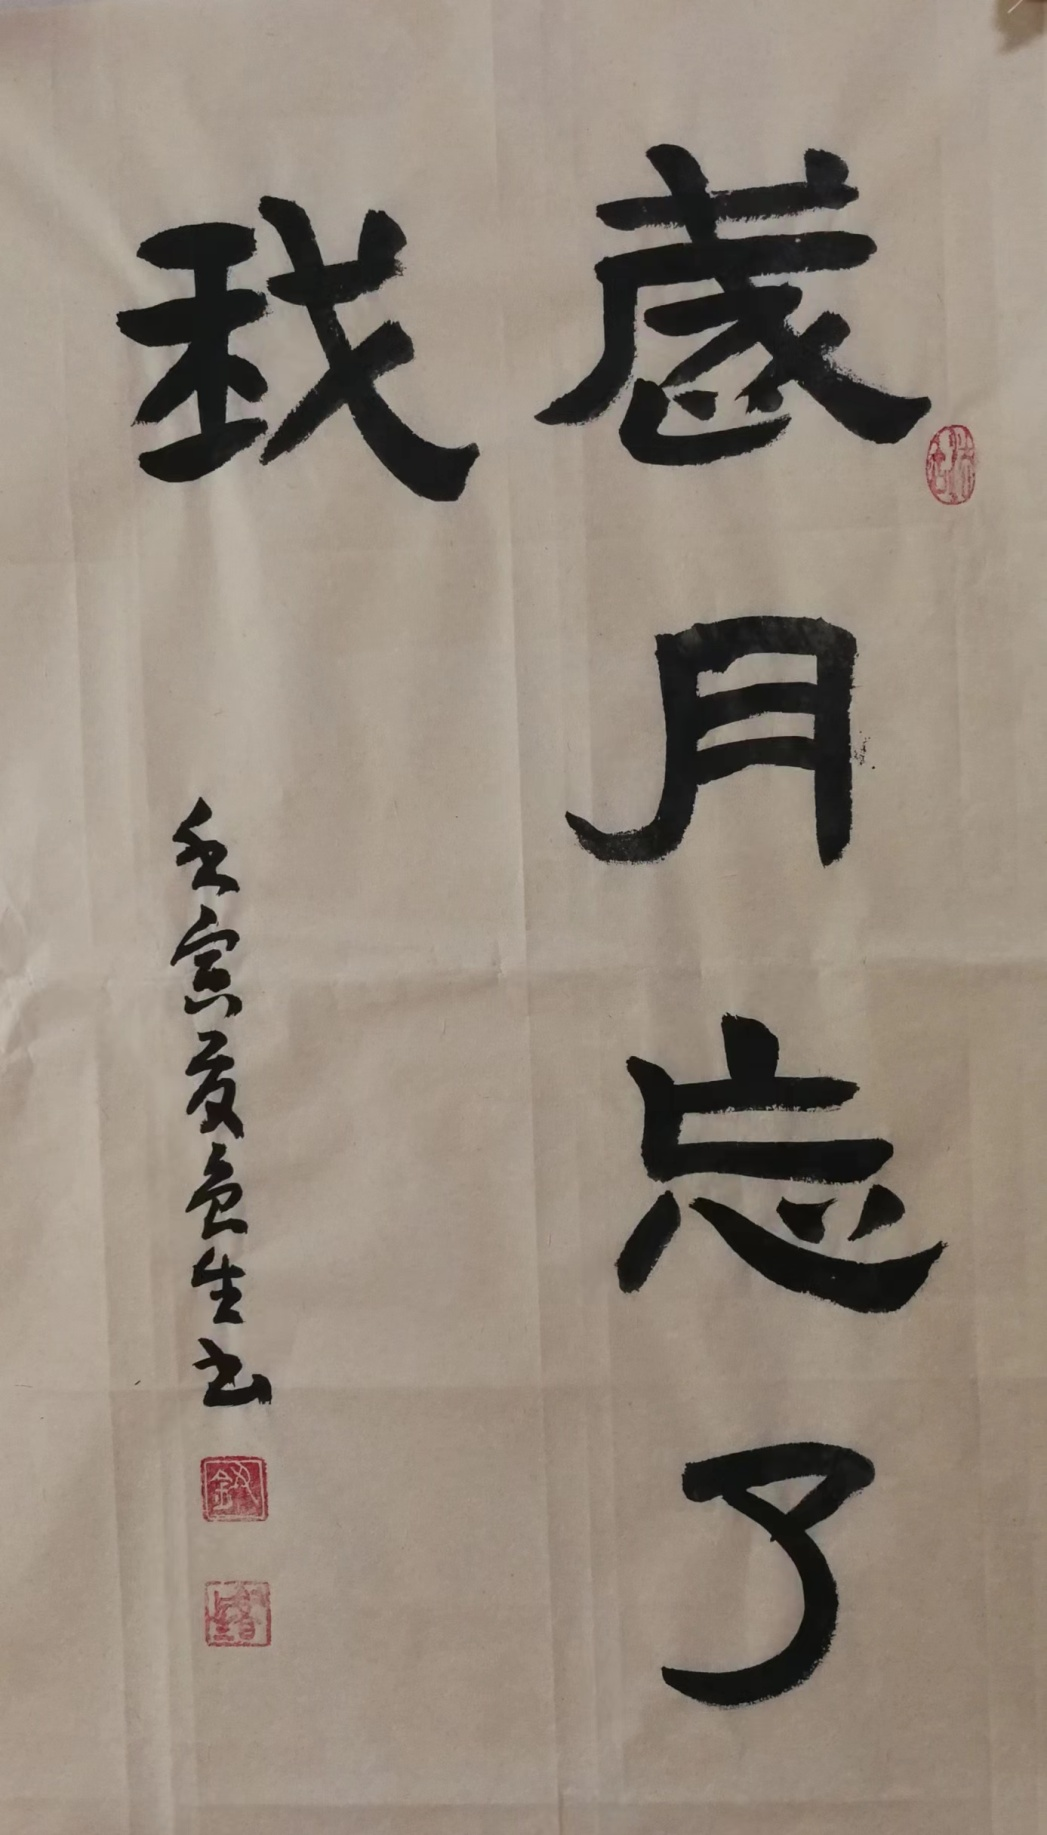 歲月忘了
我
壬寅夏魚生书